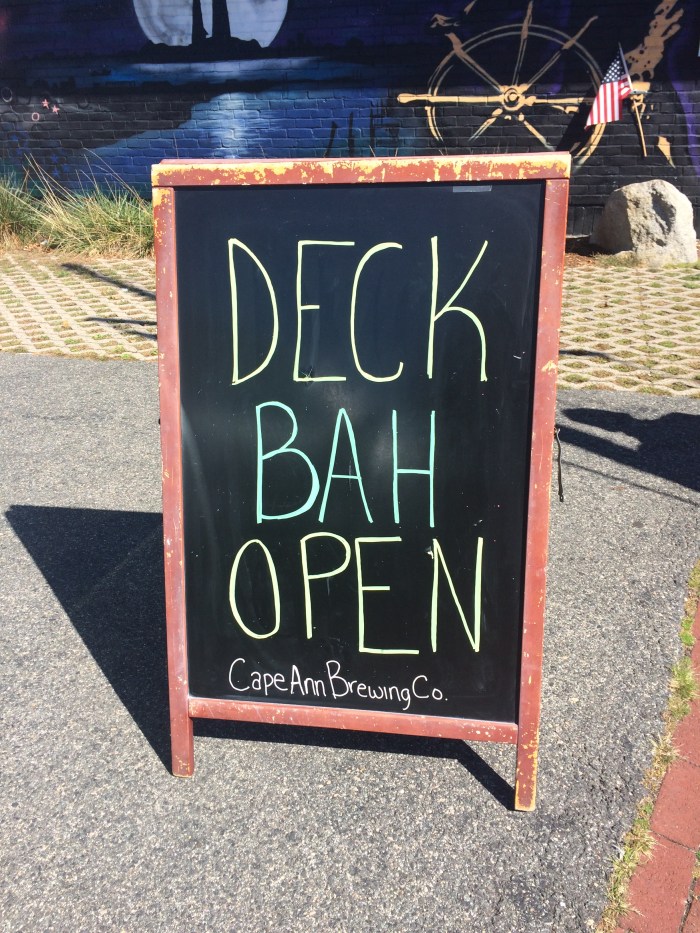 DECK
BAH
OPEN
Cape Ann Brewing Co.